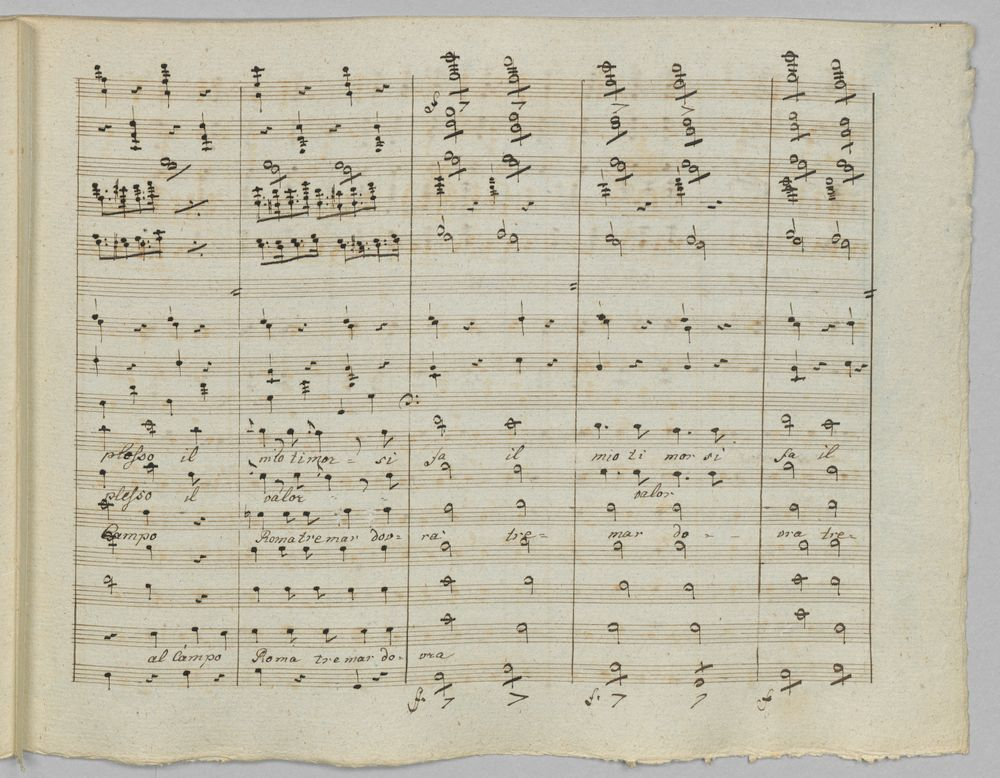 plesso il mio timor si fa il mio ti mor si fa il
plesso il valor valor
Campo Roma tremar dov= rà tre= mar do= vra tre=
al Campo Roma tremar do= vra